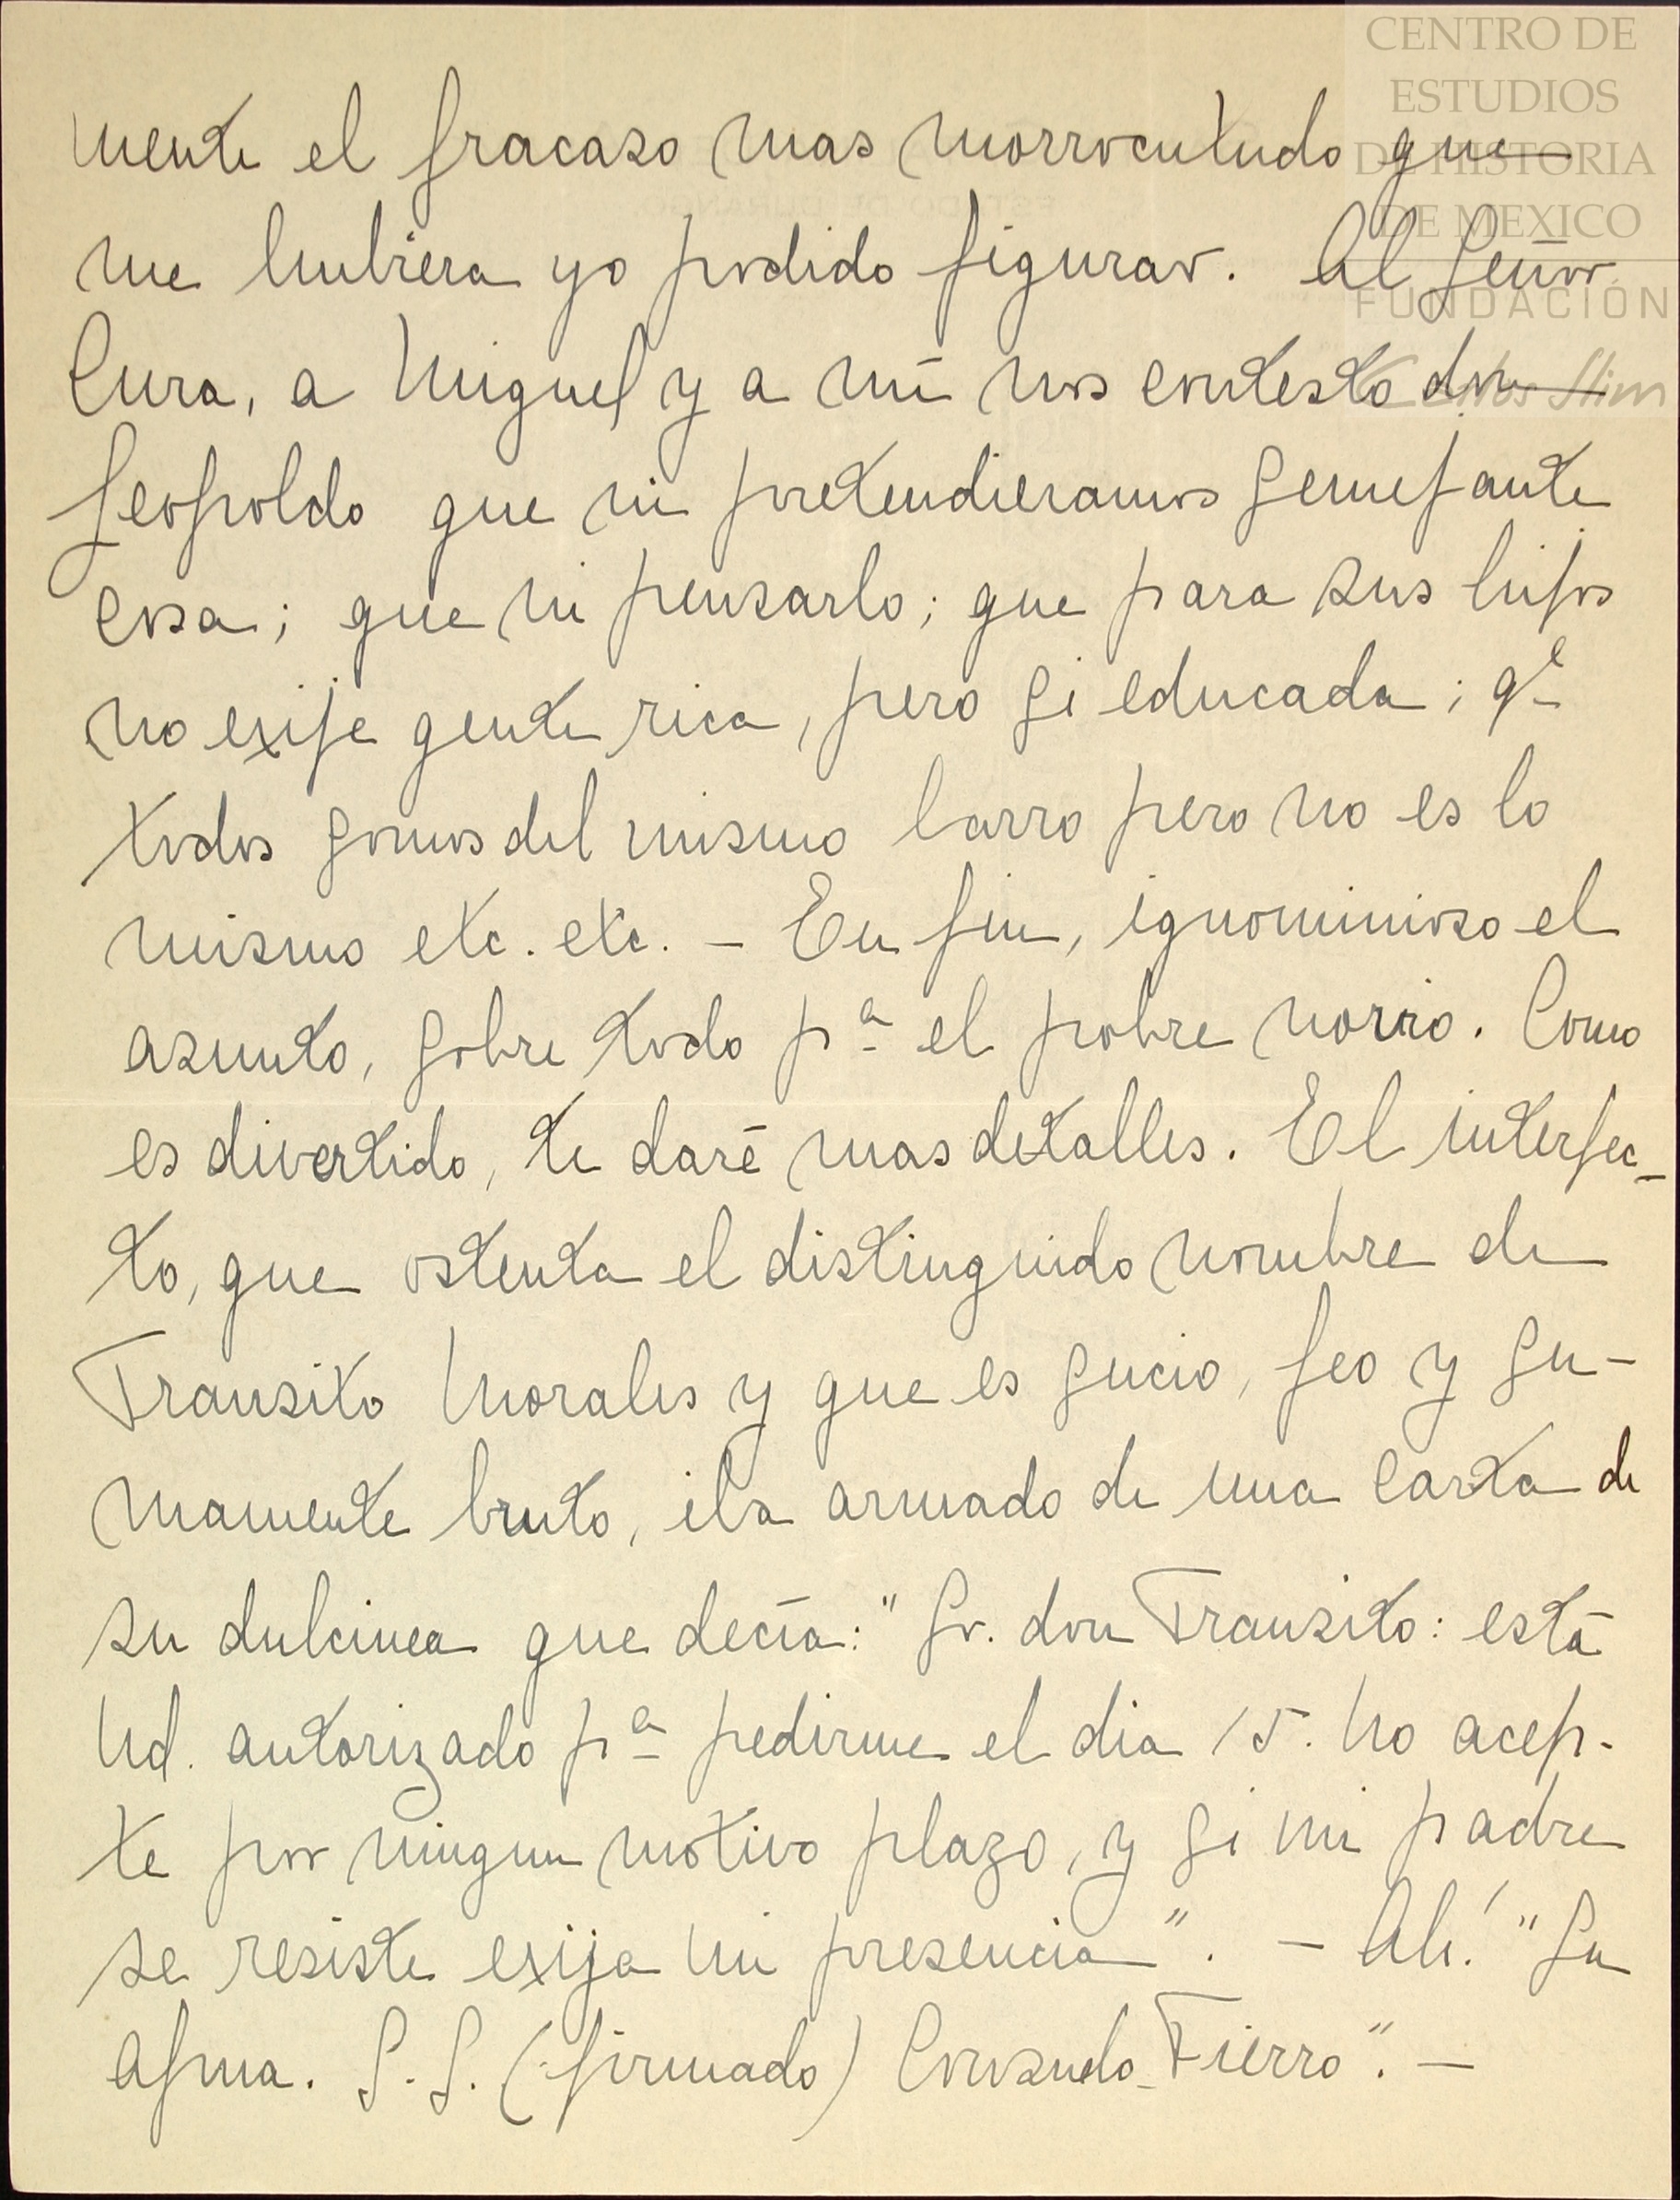 CENTRO DE
ESTUDIOS
DE HISTORIA
DE MEXICO
FUNDACIÓN
Carlos Slim
mente el fracaso mas morrocutudo que
me hubiera yo podido figurar. Al Señor
Cura, a Miguel y a mí nos contesto don
Leopoldo que ni pretendieramos semejante
cosa; que ni pensarlo; que para sus hijos
no exije gente rica, pero si educada; qe
todos somos del mismo barro pero no es lo
mismo etc. etc. - En fin, ignominioso el
asunto, sobre todo pa el pobre novio. Como
es divertido, te daré mas detalles. El interfec-
to, que ostenta el distinguido nombre de
Transito Morales y que es sucio, feo y su-
mamente bruto, iba armado de una carta de
su dulcinea que decía: "Sr. don Transito: está
Ud. autorizado pa pedirme el dia 15. No acep-
te por ningun motivo plazo, y si mi padre
se resiste exija mi presencia". - Ah! "Su
afma. S. S. (firmado) Consuelo Fierro". -